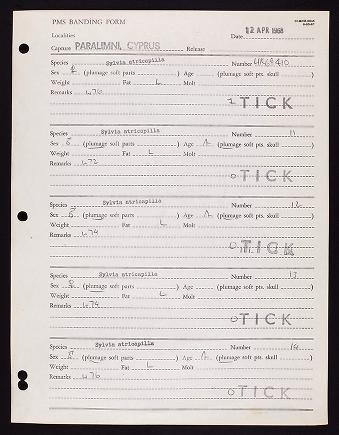 PMS BANDING FORM
Localities Date 12 APR 1968
Capture PARALIMNI, CYPRUS Release
Species Sylvia atricapilla Number
Sex (plumage soft parts ) Age (plumage soft pts. skull )
Weight Fat L Molt
Remarks 470
TICK
Species Sylvia atricapilla Number 11
Sex (plumage soft parts ) Age (plumage soft pts. skull )
Weight Fat L Molt
Remarks 472
0 TICK
Species Sylvia atricapilla Number 12
Sex (plumage soft parts ) Age (plumage soft pts. skull )
Weight Fat L Molt
Remarks 474
0 TICK
Species Sylvia atricapilla Number 13
Sex (plumage soft parts ) Age (plumage soft pts. skull )
Weight Fat L Molt
Remarks 474
0 TICK
Species Sylvia atricapilla Number 14
Sex (plumage soft parts ) Age (plumage soft pts. skull )
Weight Fat L Molt
Remarks 476
0 TICK